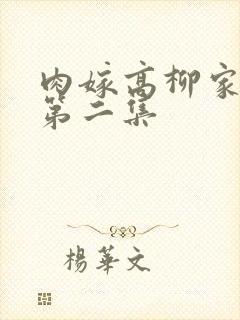 肉嫁高柳家
第二集
楊華文